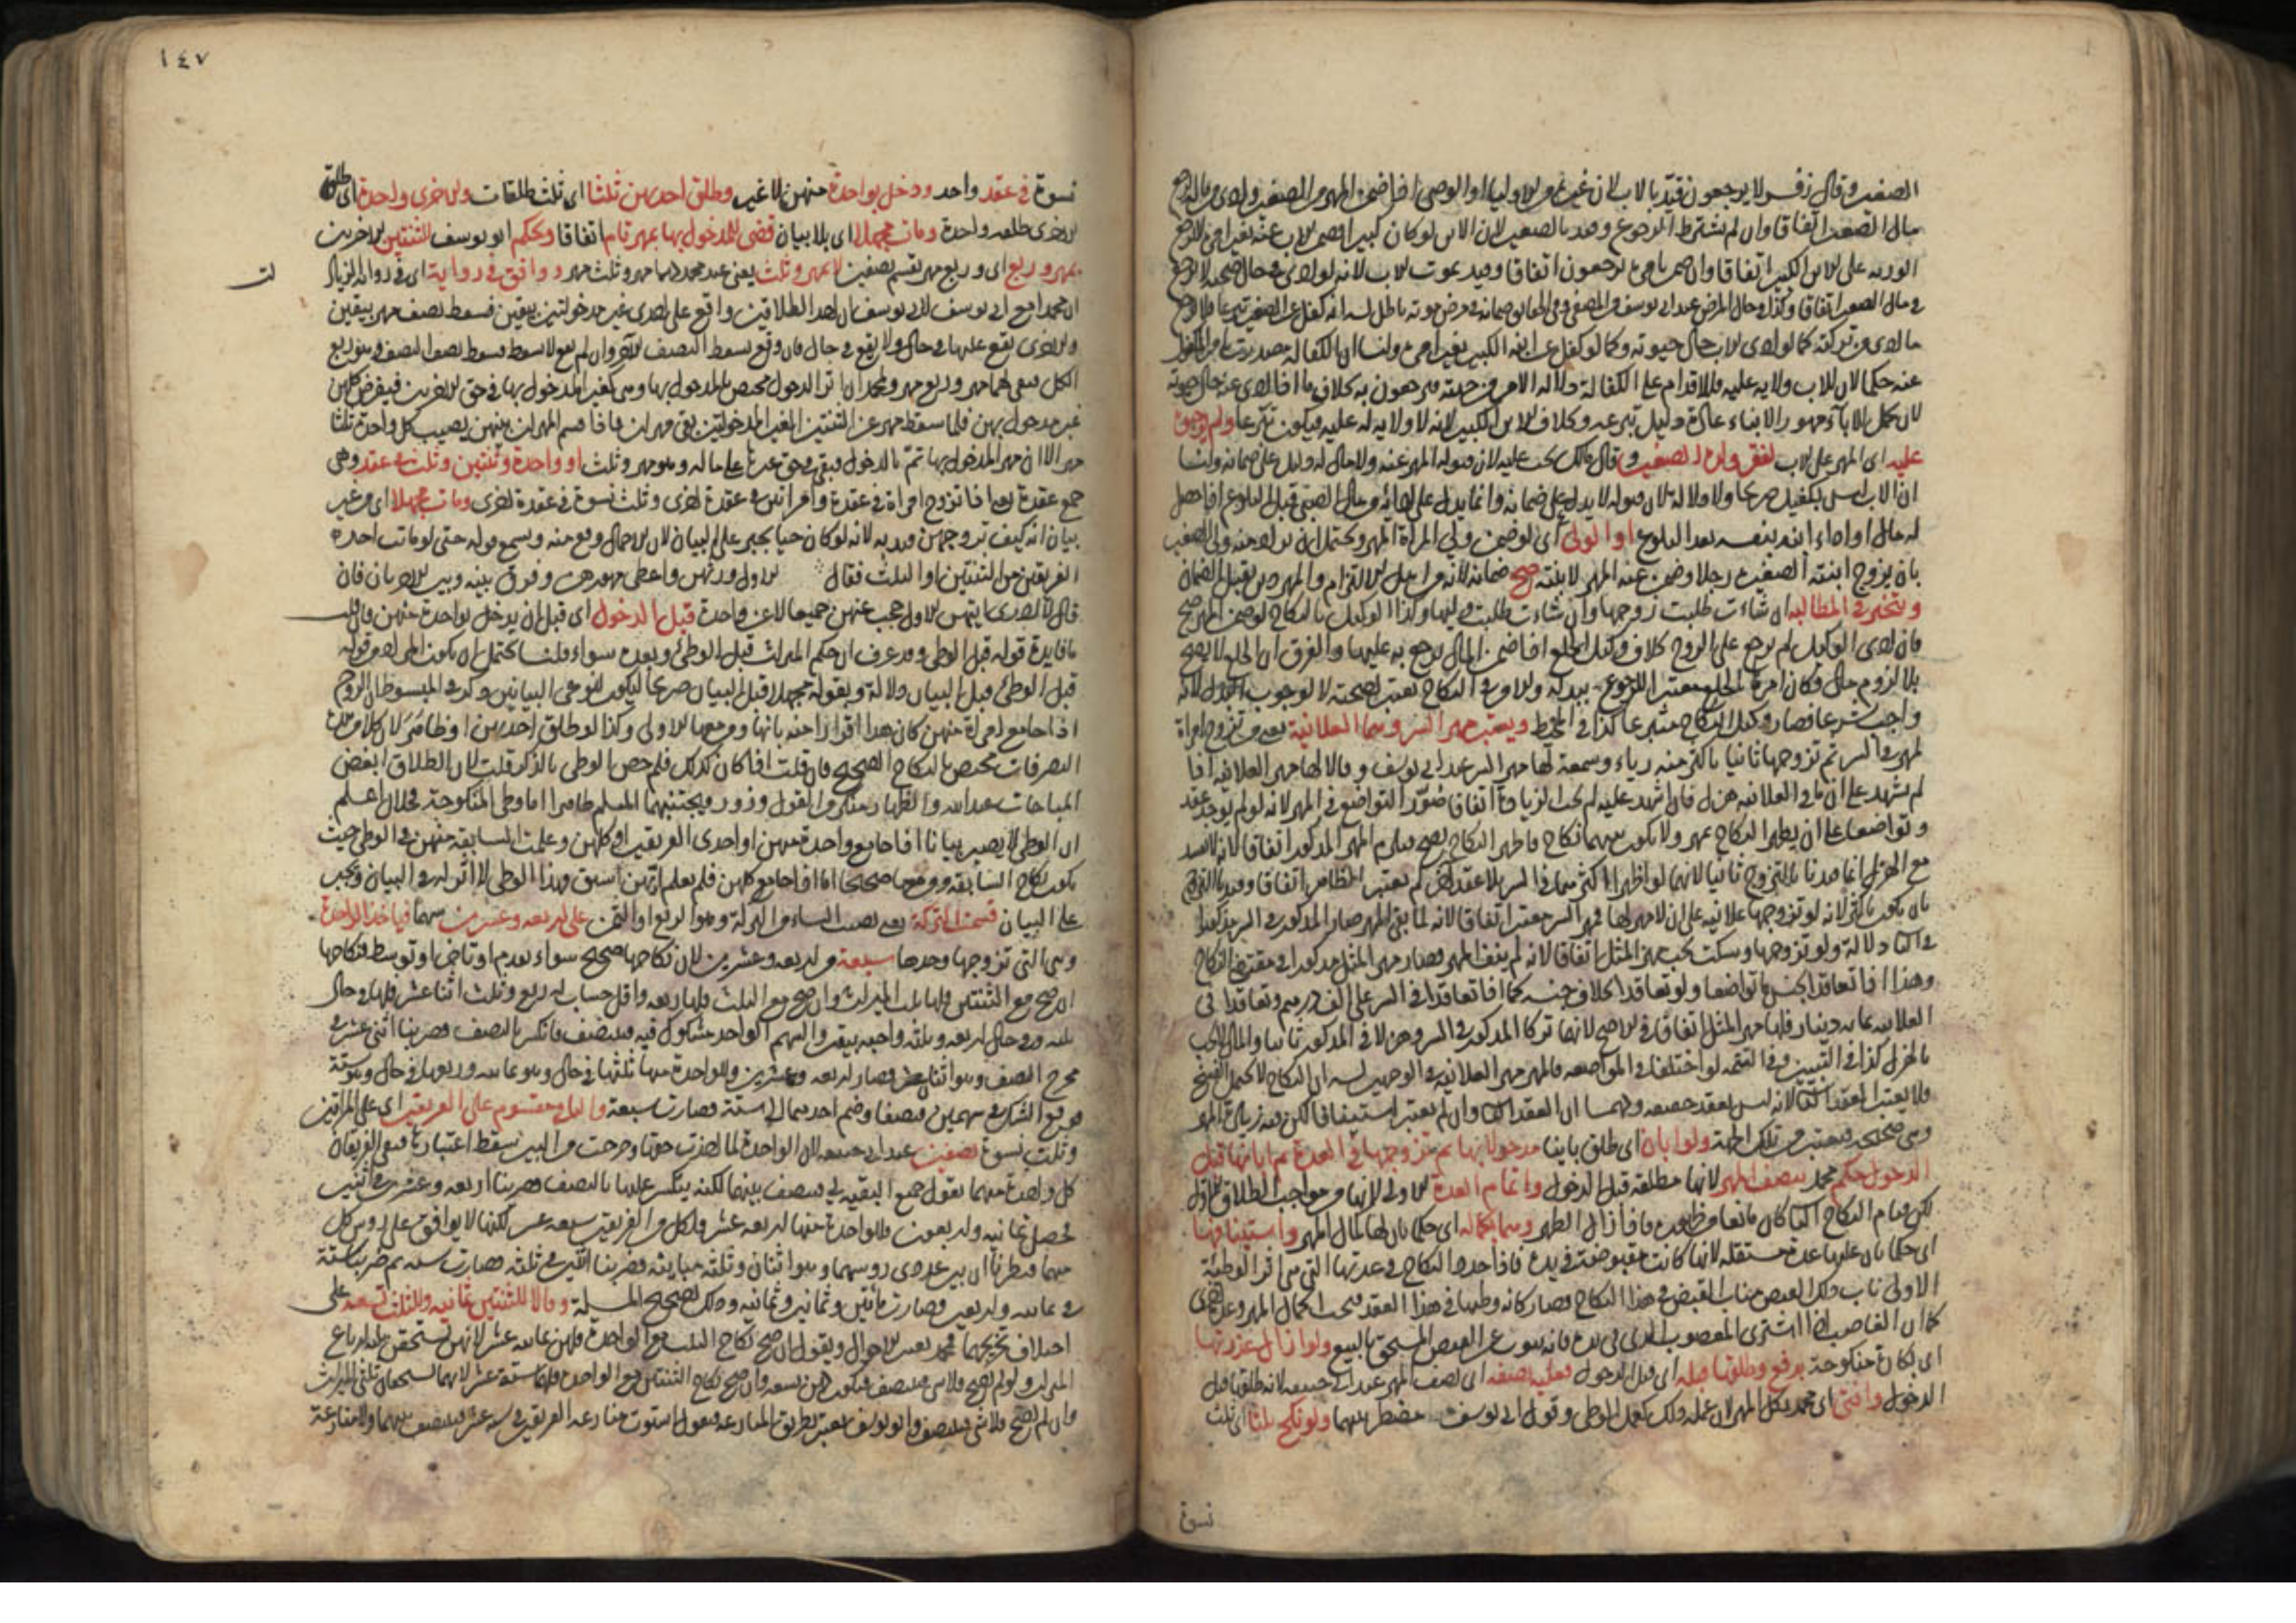 الصغير وقال زفر لا يرجعون قيد بالاب لان غيره من الاولياء او الوصي اذا ضمن المهر من الصغير وادى من ماله يرجع
في مال الصغير اتفاقا وان لم يشترط الرجوع وقيد بالصغير لان الابن لو كان كبيرا فضمن الاب عنه بغير امره لا يرجع
الورثة على الابن الكبير اتفاقا وان ضمن بامره يرجعون اتفاقا وقيد بموت الاب لانه لو ادى في حال صحته لا يرجع
في مال الصغير اتفاقا وكذا في حال المرض عند ابي يوسف
ما ادى من تركته كما لو ادى الاب حال حيوته وكما لو كفل عن ابنه الكبير بغير امره ولنا ان الكفالة صدرت بامر المكفول
عنه حكما لان للاب ولاية عليه فالاقدام على الكفالة دلالة الامر من جهته فيرجعون به بخلاف ما اذا ادى عنه حال حيوته
لان تحمل الآباء مهور الابناء عادة دليل تبرعه وبخلاف الابن الكبير لانه لا ولاية له عليه فيكون تبرعا ولم يوجبوه
عليه اى المهر على الاب لفقر ولده الصغير وقال مالك يجب عليه لان قبوله المهر عنه ولا مال له دليل على ضمانه ولنا
ان الاب ليس بكفيل صريحا ولا دلالة لان قبوله لا يدل على ضمانه وانما يدل على ادائه من مال الصبي قبل البلوغ اذا حصل
له مال او اداء ابنه بنفسه بعد البلوغ او الولي اى لو ضمن ولي المرأة المهر ويحتمل ان يراد منه ولي الصغير
بان يزوج ابنته الصغيرة رجلا وضمن عنه المهر لابنته صح ضمانه لانه من اهل الالتزام والمهر دين يقبل الضمان
وتتخير في المطالبة ان شاءت طلبت زوجها وان شاءت طلبت وليها وكذا الوكيل بالنكاح لو ضمن المهر صح
فان ادى الوكيل لم يرجع على الزوج بخلاف وكيل الخلع اذا ضمن المال يرجع به عليها والفرق ان الخلع لا يصح
بلا لزوم مال فكان امره الخلع معتبرا للرجوع ببدله والامر في النكاح يعتبر لصحته لا لوجوب البدل لانه
واجب شرعا فصار وكيل النكاح متبرعا كذا في المحيط ويعتبر مهر السر وسما العلانية يعني من تزوج امراة
لمهر في السر ثم تزوجها ثانيا باكثر منه رياء وسمعة لها مهر السر عند ابي يوسف وقالا لها مهر العلانية اذا
لم يشهد على ان ما في العلانية هزل فان اشهد عليه لم تجب الزيادة اتفاقا صور التواضع في المهر لانه لو لم يوجد عقد
وتواضعا على ان يظهر النكاح بمهر ولا يكون بينهما نكاح فاظهر النكاح يصح ويلزم المهر المذكور اتفاقا لانه لا يفسد
مع الهزل انما قيدنا بالتزوج ثانيا لانهما لو اظهرا اكثر مما في السر بلا عقد آخر لم يعتبر الظاهر اتفاقا وقيد بالتزوج
بان يكون باكثر لانه لو تزوجها علانية على ان لا مهر لها فمهر السر معتبر اتفاقا لانه لما نفي المهر صار المذكور في السر مذكورا
في الثاني دلالة ولو تزوجها وسكت يجب مهر المثل اتفاقا لانه لم ينف المهر فصار مهر المثل مذكورا في مقتضى النكاح
وهذا اذا تعاقدا بجنس ما تواضعا ولو تعاقدا بخلاف جنسه كما اذا تعاقدا في السر على الف درهم وتعاقدا في
العلانية بمائة دينار فلها مهر المثل اتفاقا في الاصح لانهما تركا المذكور في السر وهزلا في المذكور ثانيا والمال لا يجب
بالهزل كذا في التبيين وفي التتمة لو اختلفا في المواضعة فالمهر مهر العلانية في الوجهين لان النكاح لا يحتمل الفسخ
فلا يعتبر العقد الثاني لانه ليس بعقد حقيقة ولهما ان العقد الثاني وان لم يعتبر استينافا لكن فيه زيادة المهر
وهي صحيحة فيعتبر من تلك الجهة ولو ابان اى طلق باينا مدخولا بها ثم تزوجها في العدة ثم ابانها قبل
الدخول حكم محمد بنصف المهر لانها مطلقة قبل الدخول واتمام العدة الاولى لانها من مواجب الطلاق الاول
لكن قيام النكاح الثاني كان مانعا من ظهورها فاذا زال الظهر وهما بكماله اى حكما بان لها كمال المهر واستينافها
اى حكما بان عليها عدة مستقلة لانها كانت مقبوضة في يده فاذا جدد النكاح في عدتها التي هي اثر الوطئة
الاولى ناب ذلك القبض مناب القبض في هذا النكاح فصار كانه وطئها في هذا العقد فيجب اكمال المهر وعدة اخرى
كما ان الغاصب اذا اشترى المغصوب الذي في يده فانه ينوب عن القبض المستحق بالبيع ولو ازال عذرتها
اى بكارة منكوحته بدفع وطلقها قبله اى قبل الدخول فعليه نصفه اى نصف المهر عند ابي حنيفة لانه طلقها قبل
الدخول وافتى اى محمد بكل المهر لان عمله ذلك كعمل الوطي وقول ابي يوسف مضطرب بينهما ولو نكح ثلثا اى ثلث
نسوة
١٤٧
نسوة في عقد واحد ودخل بواحدة منهن لا غير وطلق احديهن ثلثا اى ثلث طلقات والاخرى واحدة اى طلق
الاخرى طلقة واحدة ومات مجهلا اى بلا بيان قضى للمدخول بها بمهر تام اتفاقا وحكم ابو يوسف للثنتين الاخريين
بمهر وربع اى وربع مهر تقسم نصفين لا بمهر وثلث يعني عند محمد لهما مهر وثلث مهر ووافق في رواية اى في رواية الزيادات
ان محمدا مع ابي يوسف لابي يوسف ان احد الطلاقين واقع على احدى غير مدخولتين بيقين فسقط نصف مهر بيقين
والاخرى يقع عليها في حال ولا يقع في حال فان وقع سقط النصف الآخر وان لم يقع لا يسقط فسقط نصف النصف وهو ربع
الكل فبقي لهما مهر وربع مهر ولمحمد ان اثر الدخول مختص بالمدخول بها وهي كغير المدخول بها في حق الاخريين فيفرض كلهن
غير مدخول بهن فلما سقط مهر عن الثنتين الغير المدخولتين بقي مهران فاذا قسم المهران بينهن يصيب كل واحدة ثلثا
مهر الا ان مهر المدخول بها تم بالدخول فبقي حق غيرها على حاله وهو مهر وثلث او واحدة وثنتين وثلث في عقد وهي
جمع عقدة يعني اذا تزوج امراة في عقدة وامراتين في عقدة اخرى وثلث نسوة في عقدة اخرى ومات مجهلا اى من غير
بيان انه كيف تزوجهن قيد به لانه لو كان حيا يجبر على البيان لان الاجمال وقع منه ويسمع قوله حتى لو ماتت احدى
الفريقين من الثنتين او الثلث فقال الاول ورثهن واعطى مهورهن وفرق بينه وبين الاخر بان فان
قال لا ادرى ايتهن الاول حجب عنهن جميعا الا عن واحدة قبل الدخول اى قبل ان يدخل بواحدة منهن فان قلت
ما فايدة قوله قبل الوطي وقد عرف ان حكم الميراث قبل الوطي وبعده سواء قلنا يحتمل ان يكون المراد من قوله
قبل الوطي قبل البيان دلالة وبقوله مجهلا قبل البيان صريحا ليكون لنوعي البيانين ذكر في المبسوط ان الزوج
اذا جامع امراة منهن كان هذا اقرارا منه بانها ومن معها الاولى وكذا لو طلق احديهن او ظاهر لان كلا من هذه
التصرفات مختص بالنكاح الصحيح فان قلت اذا كان كذلك فلم خص الوطي بالذكر قلت لان الطلاق ابغض
المباحات عند الله والظهار منكر من القول وزور ويجتنبهما المسلم ظاهرا اما وطي المنكوحة فحلال اعلم
ان الوطي لا يصير بيانا اذا جامع واحدة منهن او احدى الفريقين او كلهن وعلمت السابقة منهن في الوطي حيث
يكون نكاح السابقة ومن معها صحيحا اما اذا جامع كلهن فلم يعلم ايتهن اسبق فهذا الوطي لا اثر له في البيان ويجبر
على البيان قسمت التركة يعني نصيب النساء من التركة وهو الربع او الثمن على اربعة وعشرين سهما فياخذ الواحدة
وهي التي تزوجها وحدها سبعة من اربعة وعشرين لان نكاحها صحيح سواء تقدم او تاخر او توسط فنكاحها
ان صح مع الثنتين فلها ثلث الميراث وان صح مع الثلث فلها ربعه واقل حساب له ربع وثلث اثنا عشر فلها في حال
ثلثه وفي حال اربعة وثلثة واجبة بيقين والسهم الواحد مشكوك فيه فيتنصف فانكسر بالنصف فضربنا اثني عشر في
مخرج النصف وهو اثنان فصار اربعة وعشرين وللواحدة منها ثلثها في حال وهو ثمانية وربعها في حال وهو ستة
فوقع الشك في سهمين فينصفا وضم احدهما الى ستة فصارت سبعة والباقي مقسوم على الفريقين اى على المراتين
وثلث نسوة نصفين عند ابي حنيفة لان الواحدة لما اخذت حقها وخرجت من البين سقط اعتبارها فبقي الفريقان
كل واحدة منهما يقول جميع البقية لي فينصف بينهما لكنه ينكسر عليها بالنصف فضربنا اربعة وعشرين في اثنين
فحصل ثمانية واربعون فللواحدة منها اربعة عشر ولكل من الفريقين سبعة عشر لكنها لا يوافق على رؤس كل
منهما فنظرنا ان بين عددي رؤسهما وهو اثنان وثلثة مباينة فضربنا اثنين في ثلثة فصارت ستة ثم ضربنا ستة
في ثمانية واربعين فصارت مائتين وثمانين وثمانية وذلك تصحيح المسئلة وقالا للثنتين ثمانية وللثلث تسعة على
اختلاف تخريجهما فمحمد يعتبر الاحوال ويقول ان صح نكاح الثلث مع الواحدة فلهن ثمانية عشر لانهن يستحقن ثلثة ارباع
الميراث ولو لم يصح فلا شيء فينصف فيكون لهن تسعة وان صح نكاح الثنتين مع الواحدة فلهما ستة عشر لانهما يستحقان ثلثي الميراث
وان لم يصح فلا شيء فينصف وابو يوسف يعتبر بطريق المنازعة فيقول استوت منازعة الفريقين في ستة عشر فينصف بينهما ولا منازعة